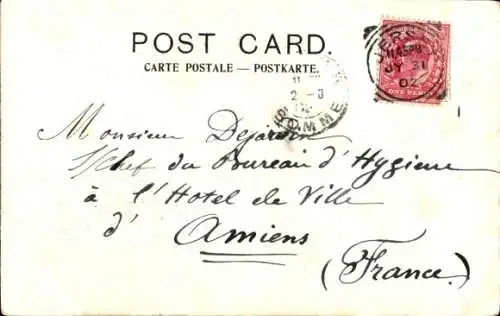 POST CARD.
CARTE POSTALE — POSTKARTE.
JERSEY
11.45PM
JY 31
02
ONE PENNY
SOMME
Monsieur Dejardin
S/Chef du Bureau d'Hygiene
à l'Hotel de Ville
d'
Amiens
(France)